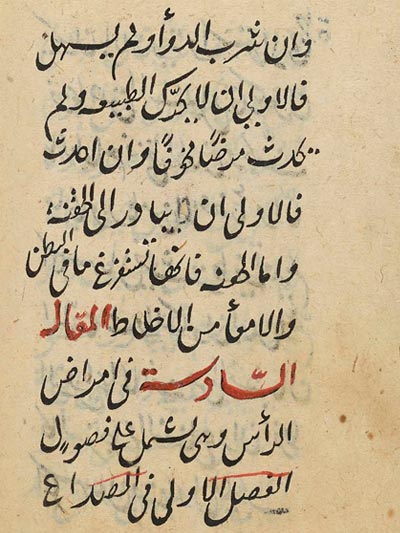 وان شرب الدوأ ولم يسهل
فالاولى ان لا يحرك الطبيعه ولم
يحدث مرضًا مخوفًا وان احدث
فالاولى ان يبادر الى الحقنه
واما الحقنه فانها تستفرغ ما فى البطن
والامعأ من الاخلاط المقاله
السّادسة فى امراض
الرأس وهى تشمل على فصول
الفصل الاولى فى الصداع